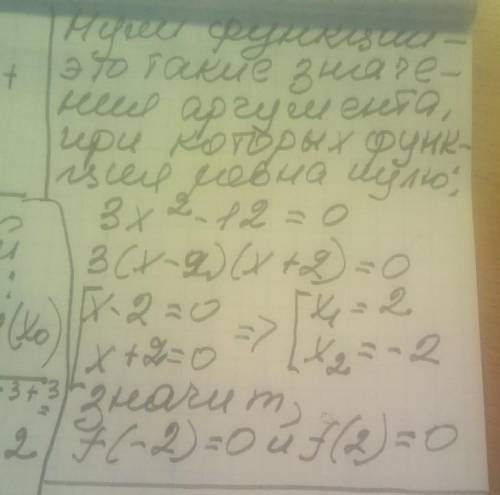 Нули функции –
это такие значе-
ния аргумента,
при которых функ-
ция равна нулю;
3x² - 12 = 0
3(x-2)(x+2) = 0
[x-2=0 => [x₁=2
x+2=0 x₂=-2
Значит,
f(-2)=0 и f(2)=0
+
:
(x₀)
-3+3
=
2